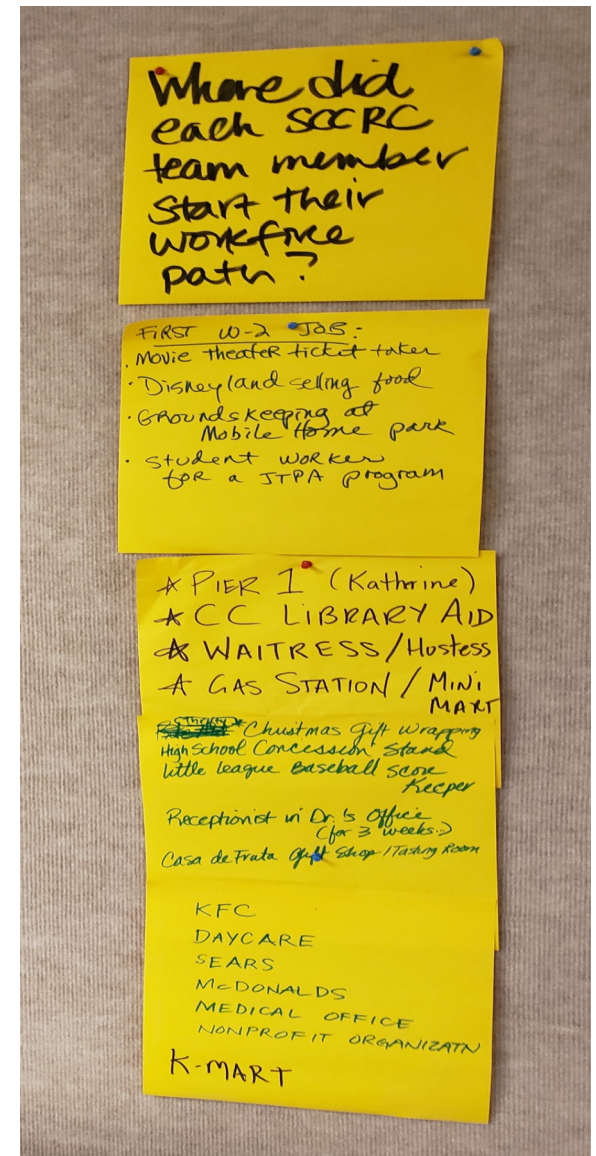 Where did
each SCCRC
team member
start their
workforce
path?
FIRST W-2 JOB:
. Movie theater ticket taker
· Disneyland selling food
· Groundskeeping at
Mobile Home park
· Student worker
for a JTPA program
☆ PIER 1 (Katherine)
☆ CC LIBRARY AID
☆ WAITRESS/Hostess
☆ GAS STATION / MINI
MART
Christmas Gift Wrapping
High School Concession Stand
little league Baseball score
Keeper
Receptionist in Dr.'s Office
(for 3 weeks:)
Casa de Fruta Gift Shop / Tasting Room
KFC
DAYCARE
SEARS
McDONALDS
MEDICAL OFFICE
NONPROFIT ORGANIZATN
K-MART